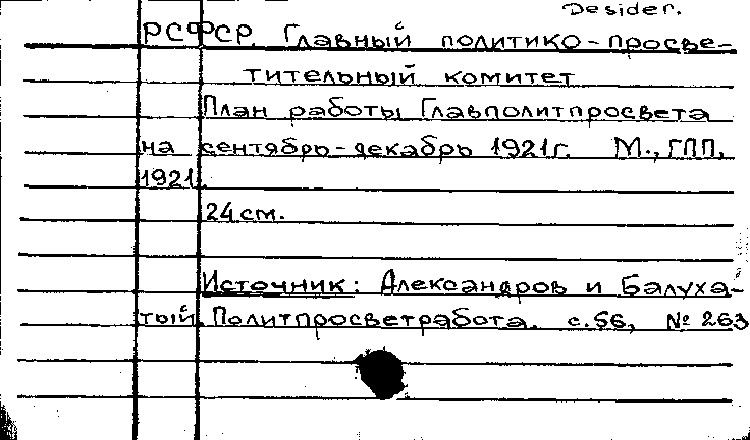 Desider.
РСФСР. Главный политико-просве-
тительный комитет
План работы Главполитпросвета
на сентябрь-декабрь 1921г. М., ГПП,
1921.
24 см.
Источник: Александров и Балуха-
тый. Политпросветработа. с.56, № 263